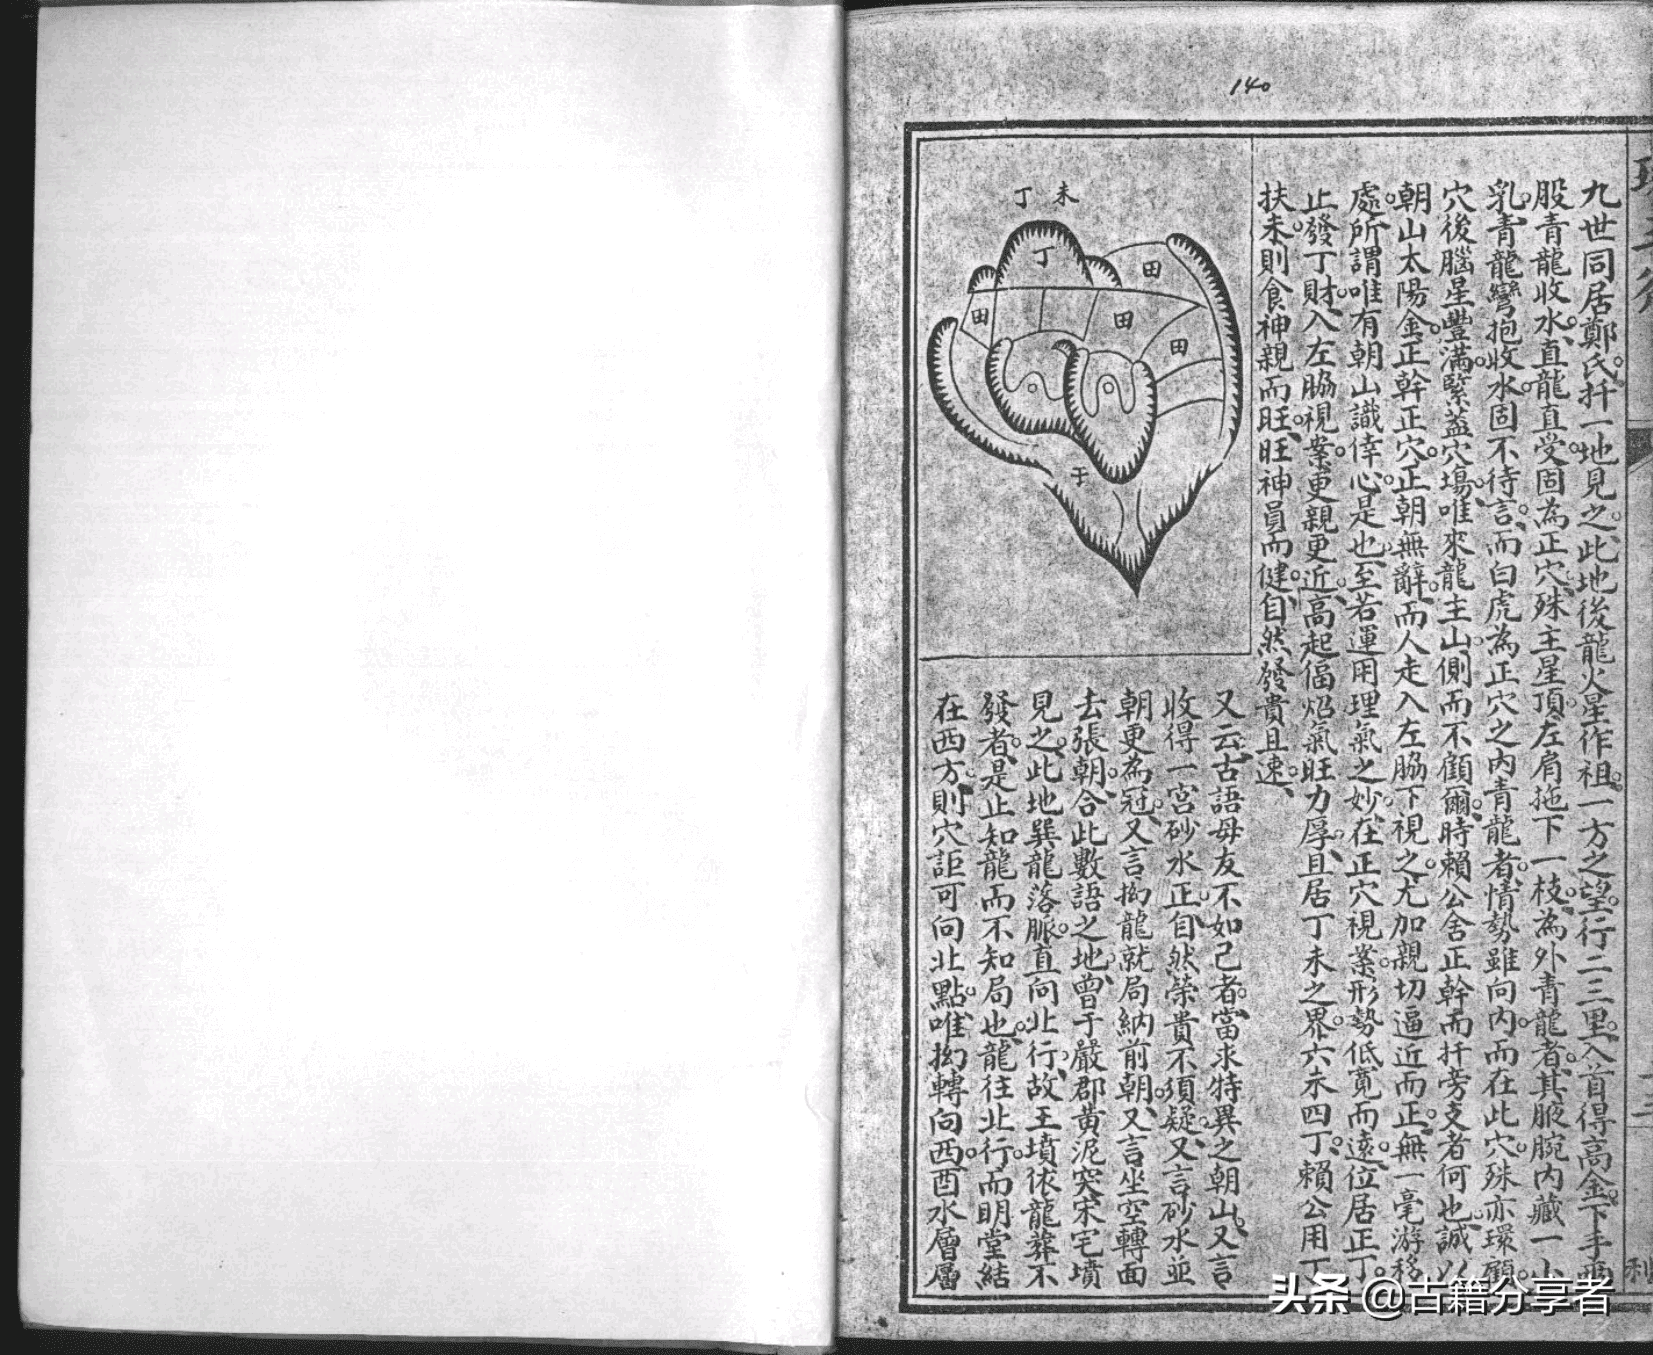 140
九世同居鄭氏扦一地見之此地後龍火星作祖一方之望行二三里入首得高金下手兩
股青龍收水直龍直受固為正穴殊主星頂左肩拖下一枝為外青龍者其腋腕內藏一小
乳青龍彎抱收水固不待言而白虎為正穴之內青龍者情勢雖向內而在此穴殊亦環顧
穴後腦星豐滿緊蓋穴塲唯來龍主山側而不顧爾時賴公舍正幹而扦旁支者何也誠以
朝山太陽金正幹正穴正朝無辭而人走入左脇下視之尤加親切逼近而正無一毫游移
處所謂唯有朝山識倖心是也至若運用理氣之妙在正穴視案形勢低寬而遠位居正丁
止發丁財入左脇視案更親更近高起偪熖氣旺力厚且居丁未之界六未四丁賴公用丁
扶未則食神親而旺旺神員而健自然發貴且速
未
丁
丁
田
田
田
田
于
又云古語毋友不如己者當求特異之朝山又言
收得一宮砂水正自然榮貴不須疑又言砂水並
朝更為冠又言拗龍就局納前朝又言坐空轉面
去張朝合此數語之地曾于嚴郡黃泥突宋宅墳
見之此地巽龍落脈直向北行故王墳依龍葬不
發者是止知龍而不知局也龍往北行而明堂結
在西方則穴詎可向北點唯拗轉向西酉水層層
三
利
头条 @古籍分享者